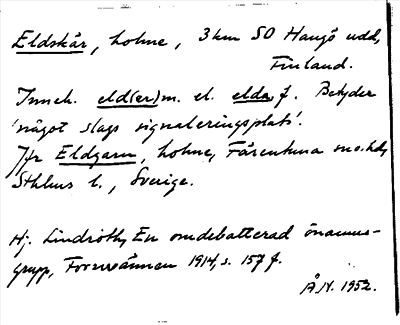 Eldskär, holme, 3 km SO Hangö udd,
Finland.
Inneh. eld(er) m. el. elda f. Betyder
'något slags signaleringsplats'.
Jfr Eldgarn, holme, Färentuna sn o. hd,
Sthlms l., Sverige.
Hj. Lindroth, En omdebatterad önamns-
grupp, Fornvännen 1914, s. 157 f.
Å.N. 1952.